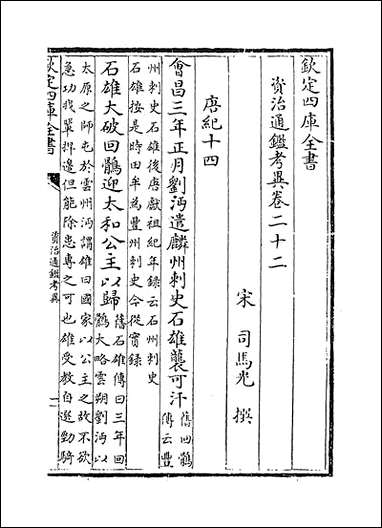 欽定四庫全書
資治通鑑考異卷二十二
宋 司馬光 撰
唐紀十四
會昌三年正月劉沔遣麟州刺史石雄襲可汗
舊回鶻
傳云豐
州刺史石雄後唐獻祖紀年錄云石州刺史
石雄按是時田牟為豐州刺史今從實錄
石雄大破回鶻迎太和公主以歸
舊石雄傳曰三年回
鶻大略雲朔劉沔以
太原之師屯於雲州沔謂雄曰國家以公主之故不欲
急功我輩捍邊但能除患專之可也雄受教自選勁騎
欽定四庫全書
資治通鑑考異
一